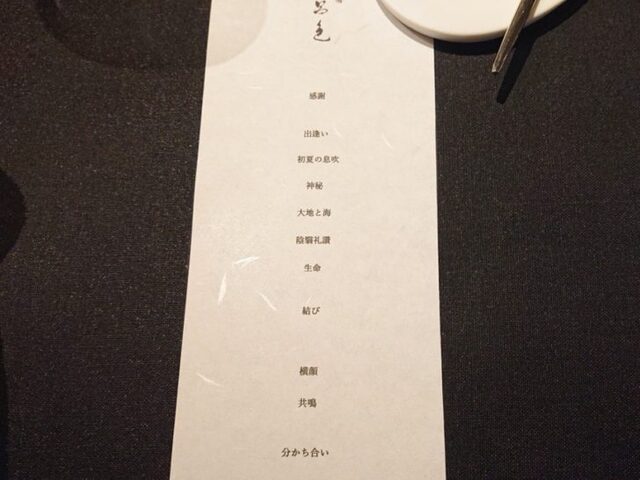 色
感謝
出逢い
初夏の息吹
神秘
大地と海
陰翳礼讃
生命
結び
横顔
共鳴
分かち合い